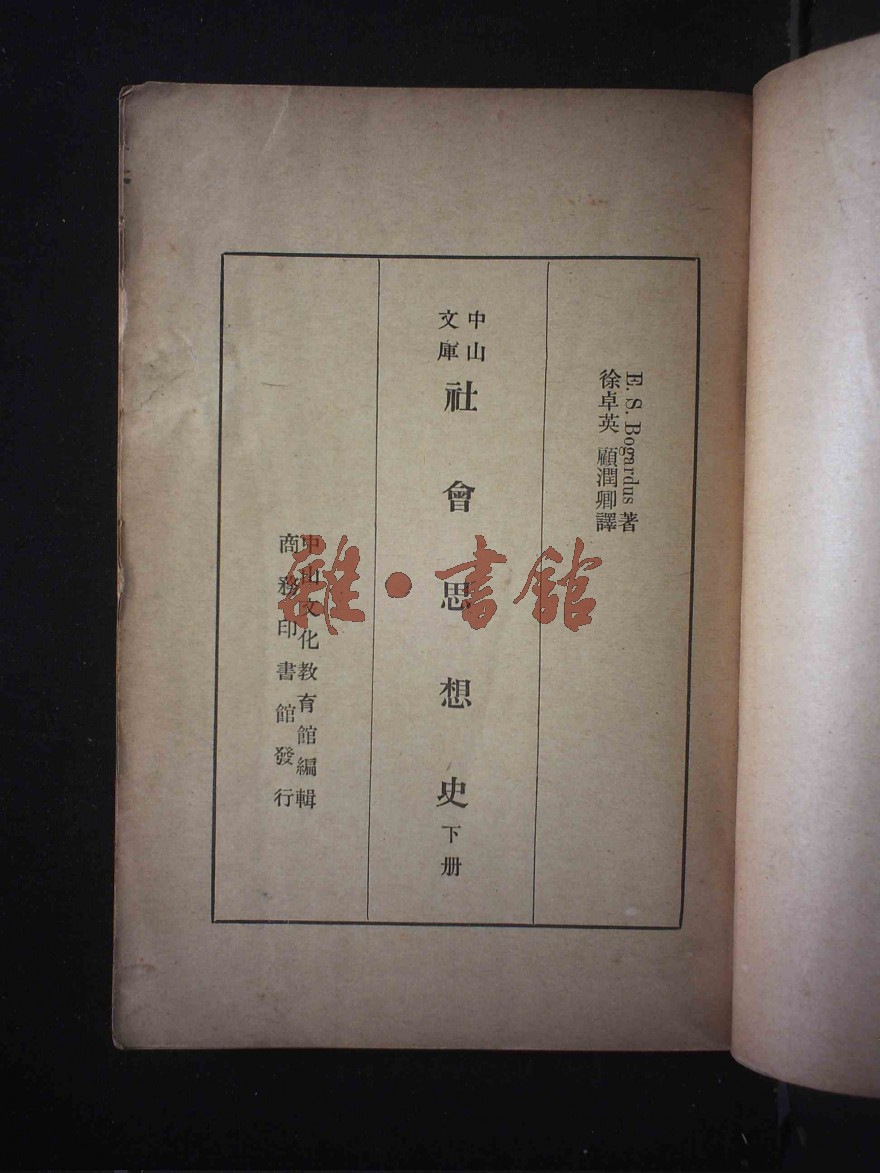 E. S. Bogardus 著
徐卓英 顧潤卿 譯
中山
文庫
社會思想史 下册
中山文化教育館編輯
商務印書館發行
雜·書館